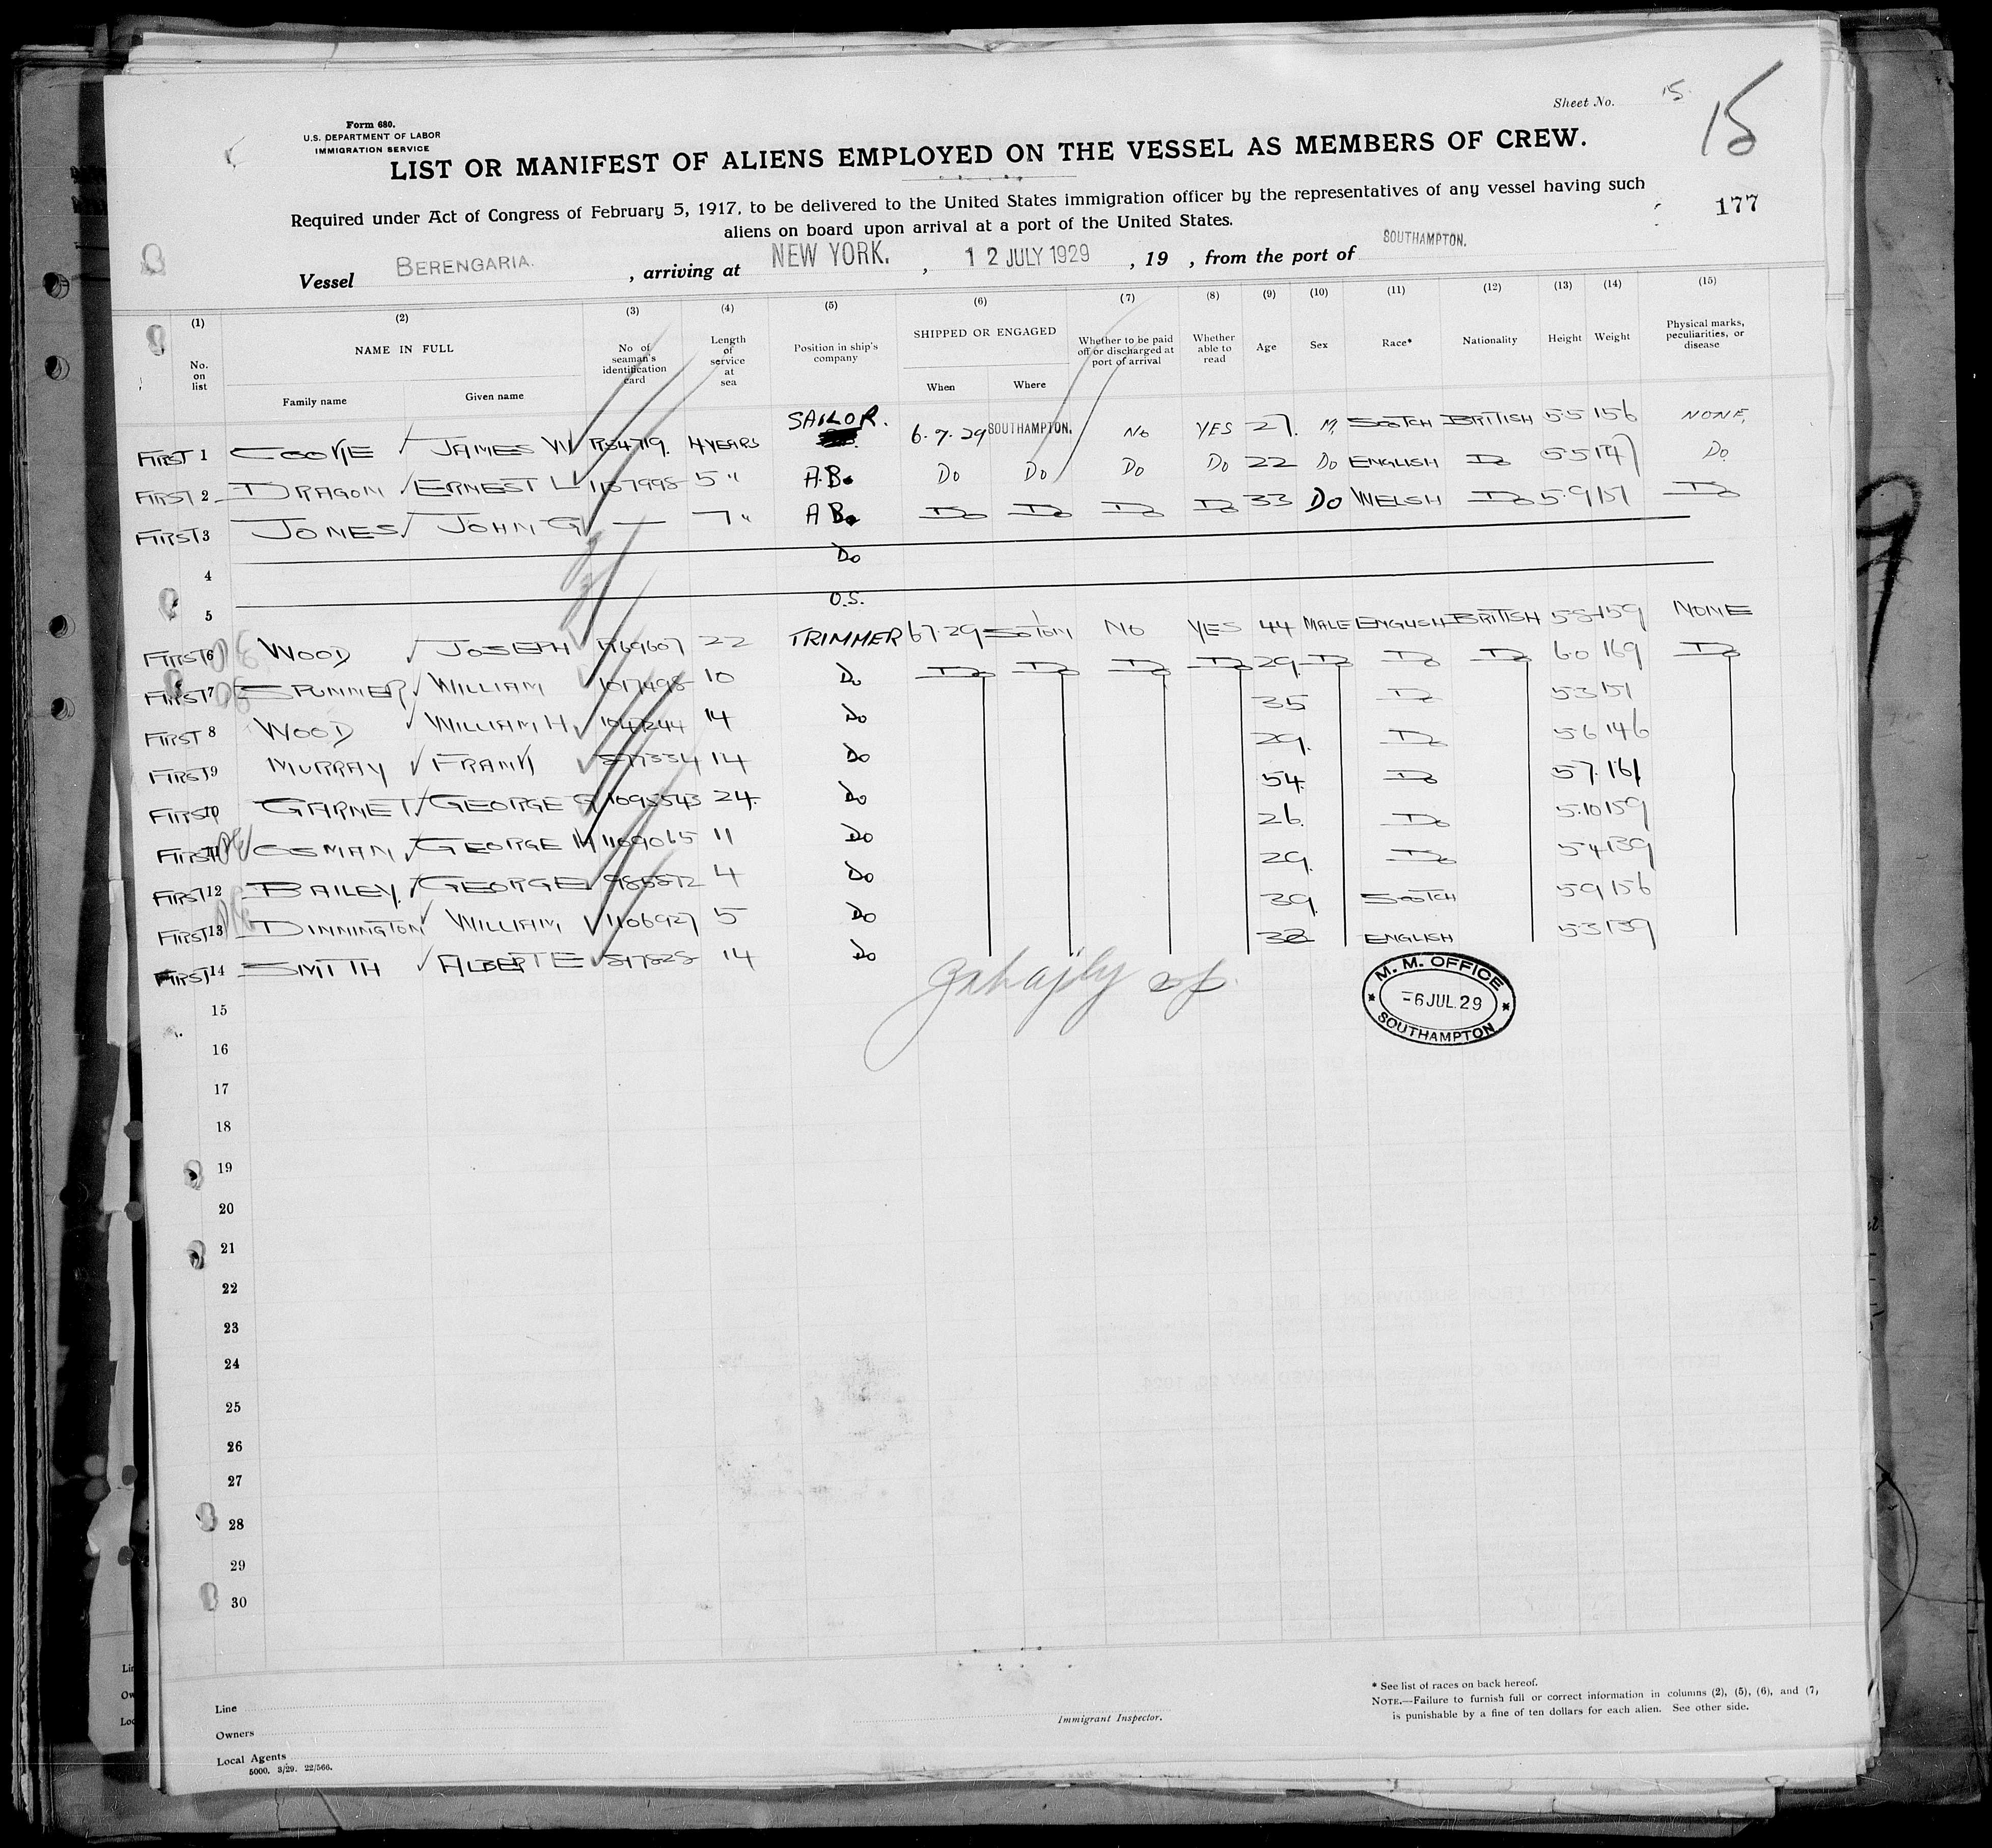 Sheet No. 15.
15
Form 680.
U.S. DEPARTMENT OF LABOR
IMMIGRATION SERVICE
LIST OR MANIFEST OF ALIENS EMPLOYED ON THE VESSEL AS MEMBERS OF CREW.
Required under Act of Congress of February 5, 1917, to be delivered to the United States immigration officer by the representatives of any vessel having such
aliens on board upon arrival at a port of the United States.
177
Vessel BERENGARIA. , arriving at NEW YORK. , 12 JULY 1929 , 19 , from the port of SOUTHAMPTON.
(1) (2) (3) (4) (5) (6) (7) (8) (9) (10) (11) (12) (13) (14) (15)
No. on list NAME IN FULL Family name Given name No. of seaman's identification card Length of service at sea Position in ship's company SHIPPED OR ENGAGED When Where Whether to be paid off or discharged at port of arrival Whether able to read Age Sex Race* Nationality Height Weight Physical marks, peculiarities, or disease
FIRST 1 COOKE JAMES W R54719. 4 YEARS SAILOR. 6.7.29 SOUTHAMPTON. NO YES 27. M. SCOTCH BRITISH 5.5 156 NONE.
FIRST 2 DRAGON ERNEST L 1157998 5 " A.B. DO DO DO DO 22 DO ENGLISH DO 5.5 147 DO
FIRST 3 JONES JOHN G — 7 " A.B. DO DO DO DO 33 DO WELSH DO 5.9 151 DO
4 DO
5 O.S.
FIRST 6 WOOD JOSEPH R69607 22 TRIMMER 6.7.29 SOTON NO YES 44 MALE ENGLISH BRITISH 5.8 159 NONE
FIRST 7 SPUNNER WILLIAM 1017498 10 DO DO DO DO DO 29. DO DO DO 6.0 169 DO
FIRST 8 WOOD WILLIAM H. 1047244 14 DO 35 DO 5.3 151
FIRST 9 MURRAY FRANK 577334 14 DO 29. DO 5.6 146
FIRST 10 GARNET GEORGE G 1095543 24. DO 54. DO 5.7. 161
FIRST 11 OSMAN GEORGE H 1169065 11 DO 26. DO 5.10 159
FIRST 12 BAILEY. GEORGE 985872 4 DO 29. DO 5.4 139
FIRST 13 DINNINGTON WILLIAM 1106927 5 DO 39. SCOTCH 5.9 156
FIRST 14 SMITH ALBERT E 517828 14 DO 32 ENGLISH 5.3 139
M. M. OFFICE
-6 JUL. 29
SOUTHAMPTON
15
16
17
18
19
20
21
22
23
24
25
26
27
28
29
30
Line
Owners
Local Agents
5000. 3/29. 22/566.
Immigrant Inspector.
* See list of races on back hereof.
NOTE.—Failure to furnish full or correct information in columns (2), (5), (6), and (7),
is punishable by a fine of ten dollars for each alien. See other side.